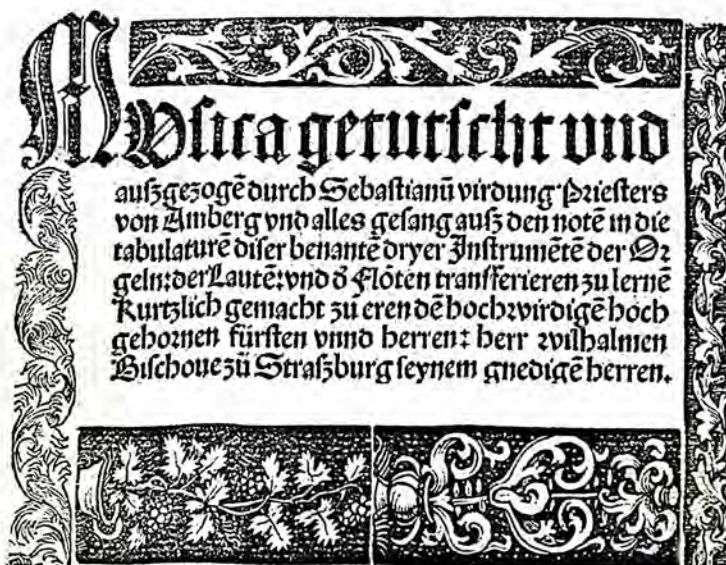 Musica getutscht und
außgezogē durch Sebastianū virdung Priesters
von Amberg vnd alles gesang auß den notē in die
tabulaturē diser benantē dryer Instrumētē der Or
geln: der Lautē: vnd d̕ Flöten transferieren zu lernē
Kurtzlich gemacht zů eren dē hochwirdigē hoch
gebornen fürsten vnnd herren: herr wilhalmen
Bischoue zů Straßburg seynem gnedigē herren.